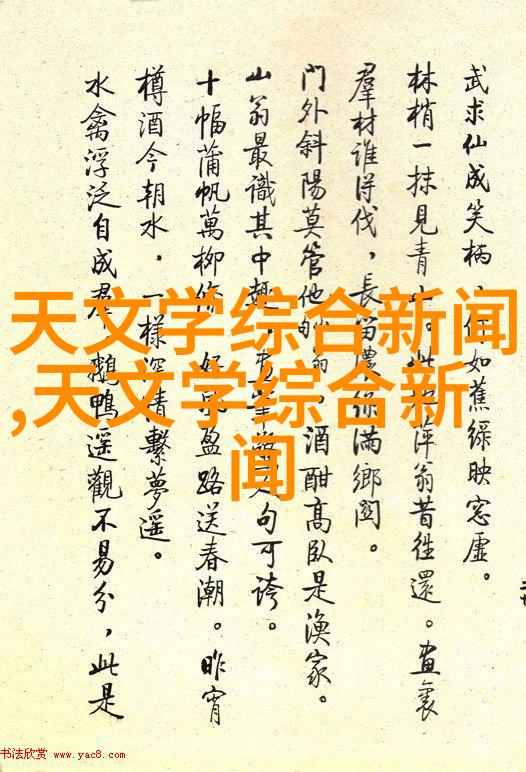 武求仙成笑柄,何如蕉綠映窓虛。
林梢一抹見青山。此
萍翁昔徃還。畫裏
羣材誰得伐,長笛
綠滿鄉関。
門外斜陽莫管他
酒酣高臥是漁家。
山翁最識其中趣,
句可誇。
十幅蒲帆萬柳條,好風盈路送春潮。昨宵
樽酒今朝水,一樣深情繫夢遥。
水禽浮泛自成羣,鵝鴨遥觀不易分,此是
天文学综合新闻
,天文学综合新
闻
书法欣赏 www.yac8.com